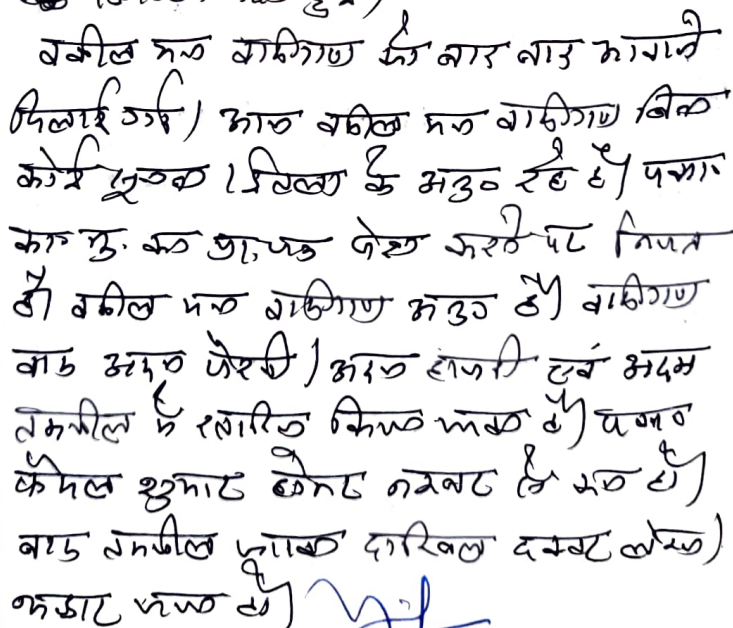 वकील मन वादीगण को बार बार आवाजें
दिलाई गई। आज वकील मन वादीगण बिना
कोई सूचना के अनु० रहे है। पत्रा०
का० मु. का प्रा. पत्र पेश करने पर नियत
है। वकील मन वादीगण अनु० है। वादीगण
वाद अदम पैरवी। अदम हाजरी एवं अदम
तकमील में खारिज किया जाता है। पत्रा०
फैसल शुमार होकर नम्बर से कम हो।
बाद तकमील जाब्ता दाखिल दफ्तर